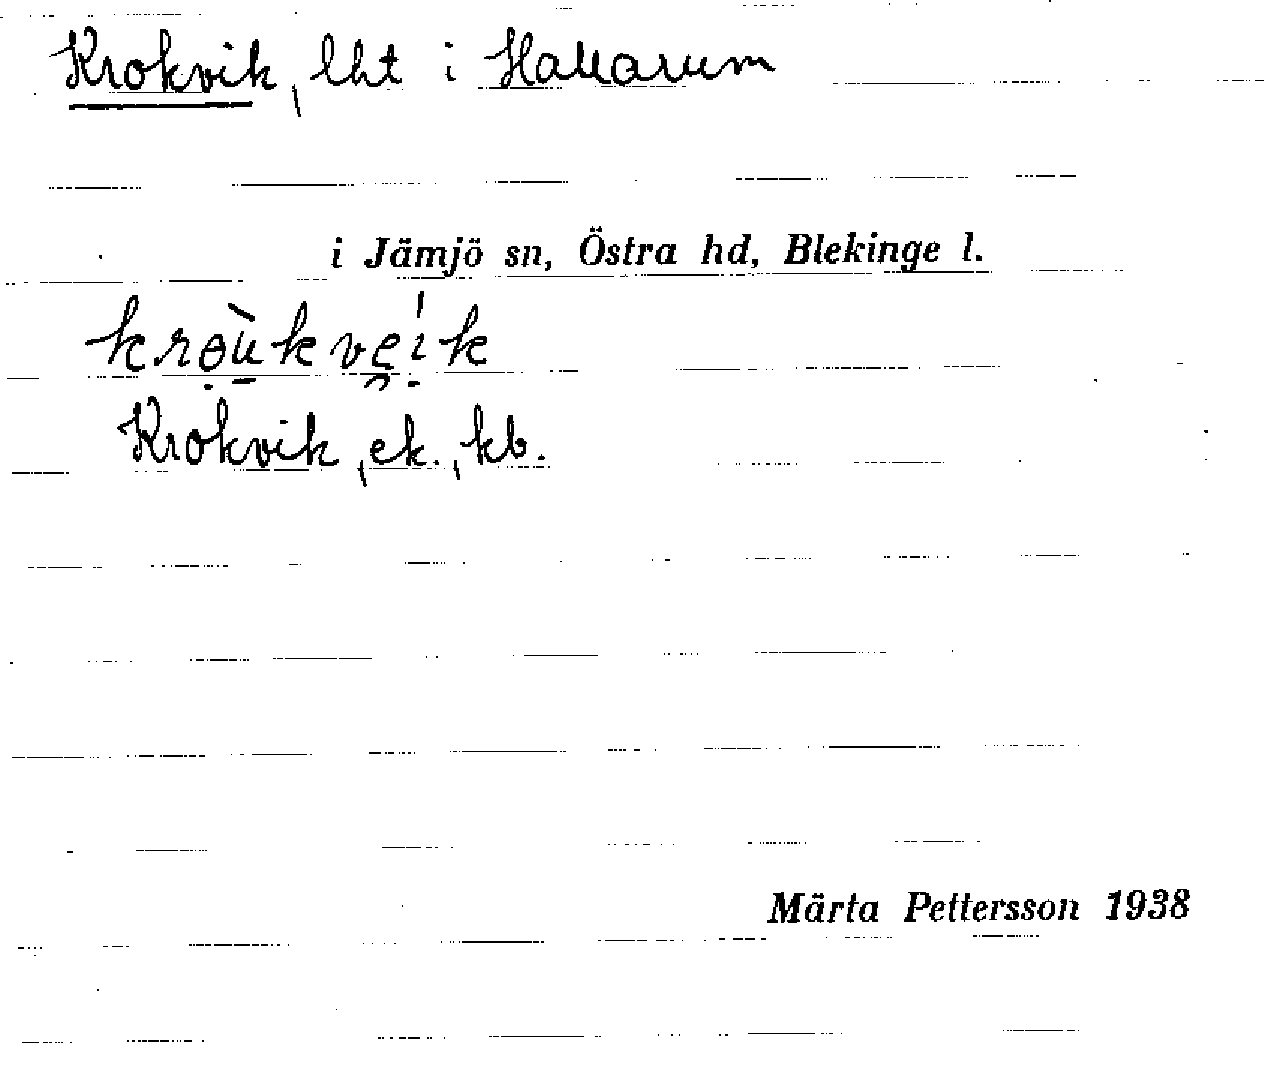 Krokvik, lht i Hallarum
i Jämjö sn, Östra hd, Blekinge l.
krɵ̣̀ṳkvḙík
Krokvik, ek., kb.
Märta Pettersson 1938